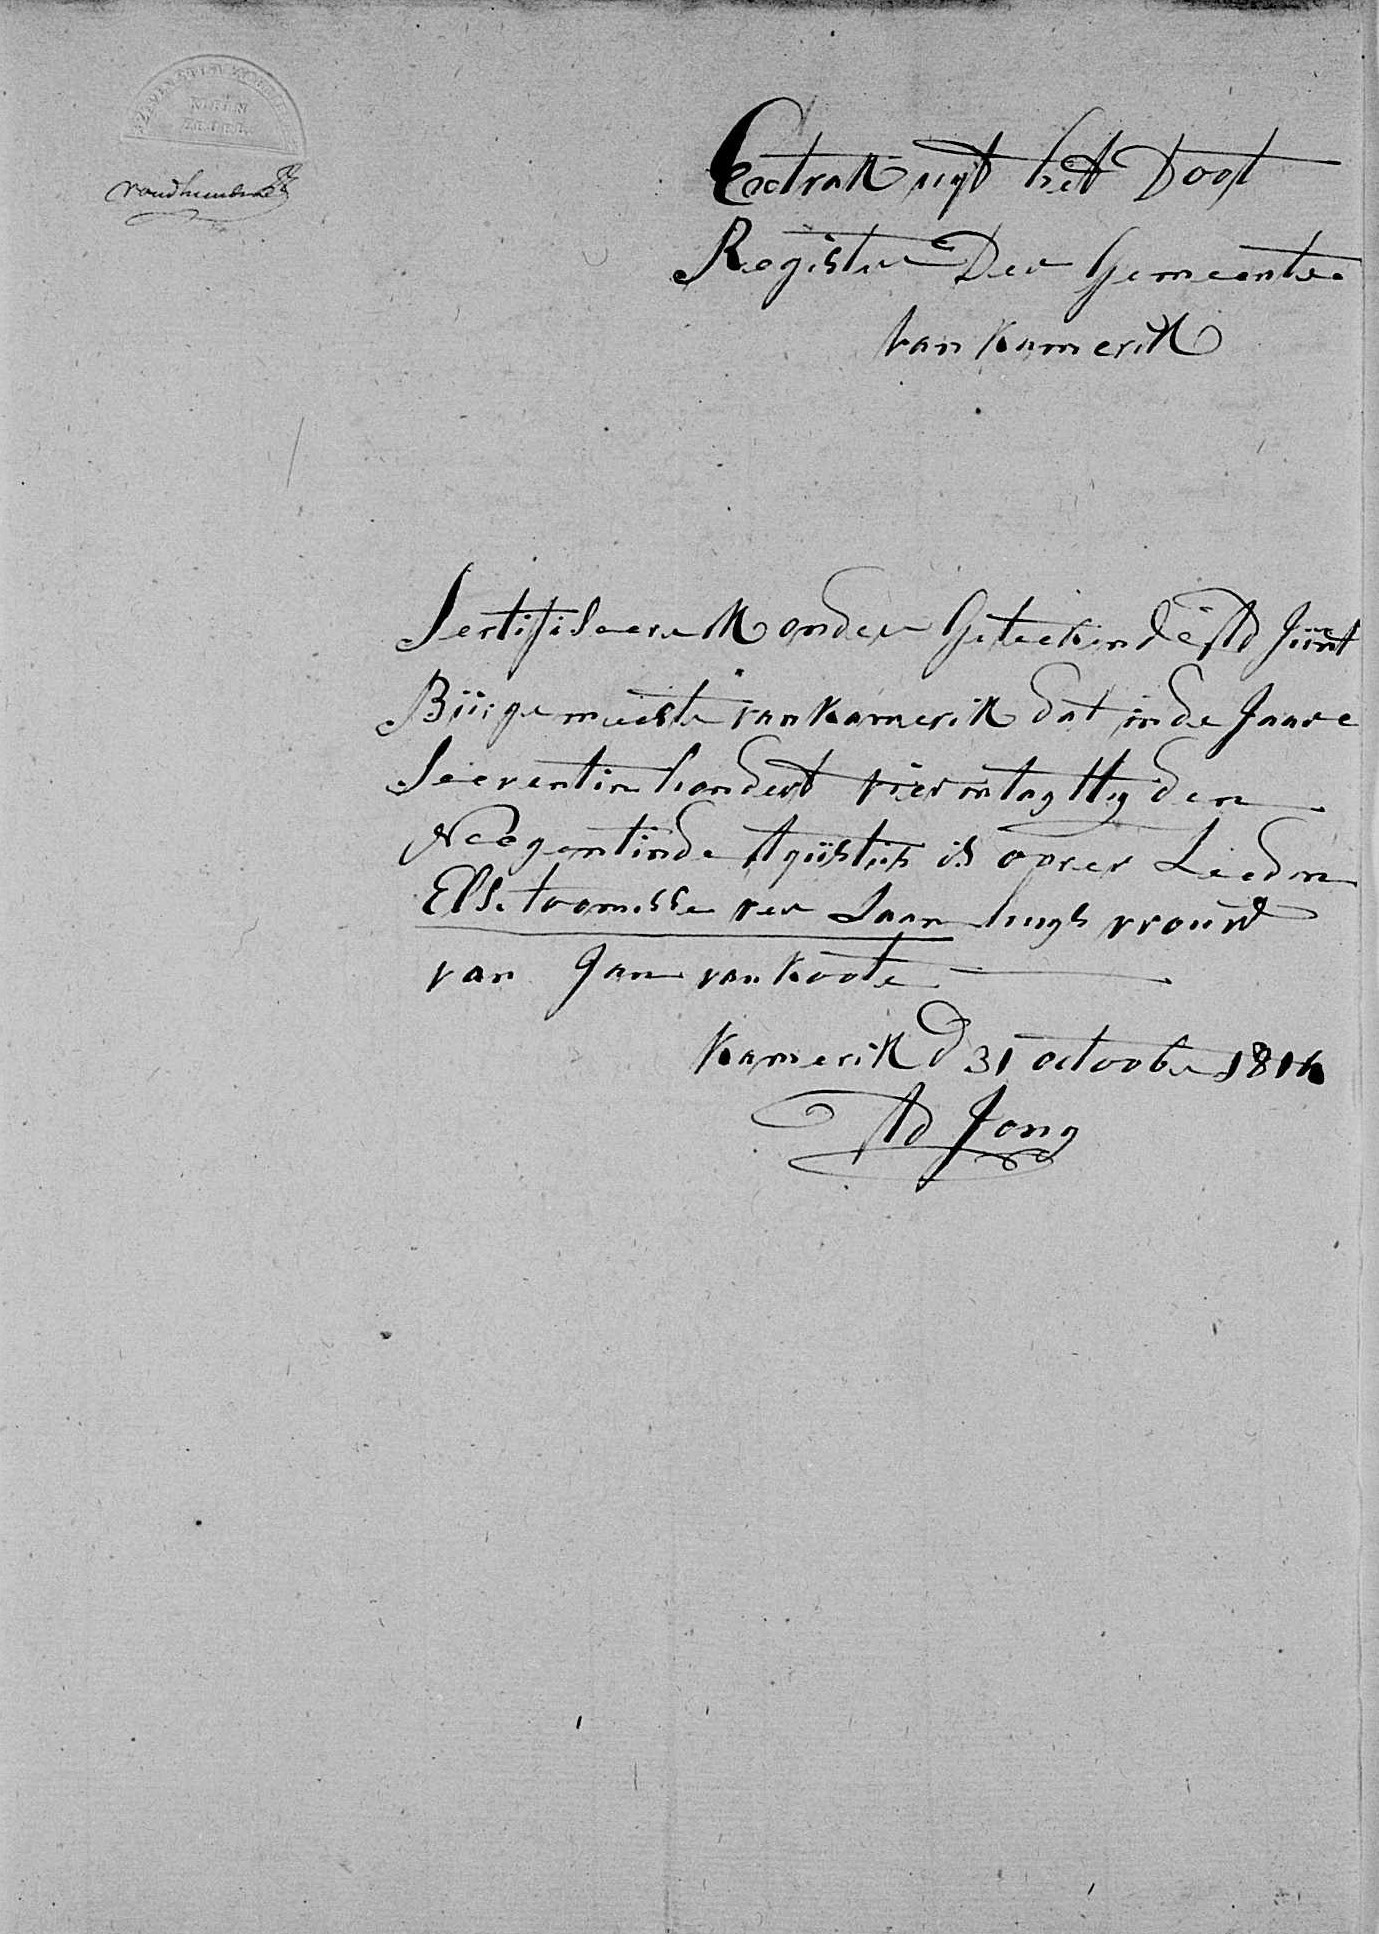 Extrakt uijt het Doot
Register Der Gemeente
van Kamerik
Sertifiseere Ik onder Geteekende Ad Junt
Burgemeester van Kamerik dat in de Jaare
Seeventinhondert vierintagttig den
Neegentinde Agustus is over Leeden
Els toomisse ver Laan huijs vrouw
van Jan van Koote
Kamerik d 31 octoober
Ad Jong